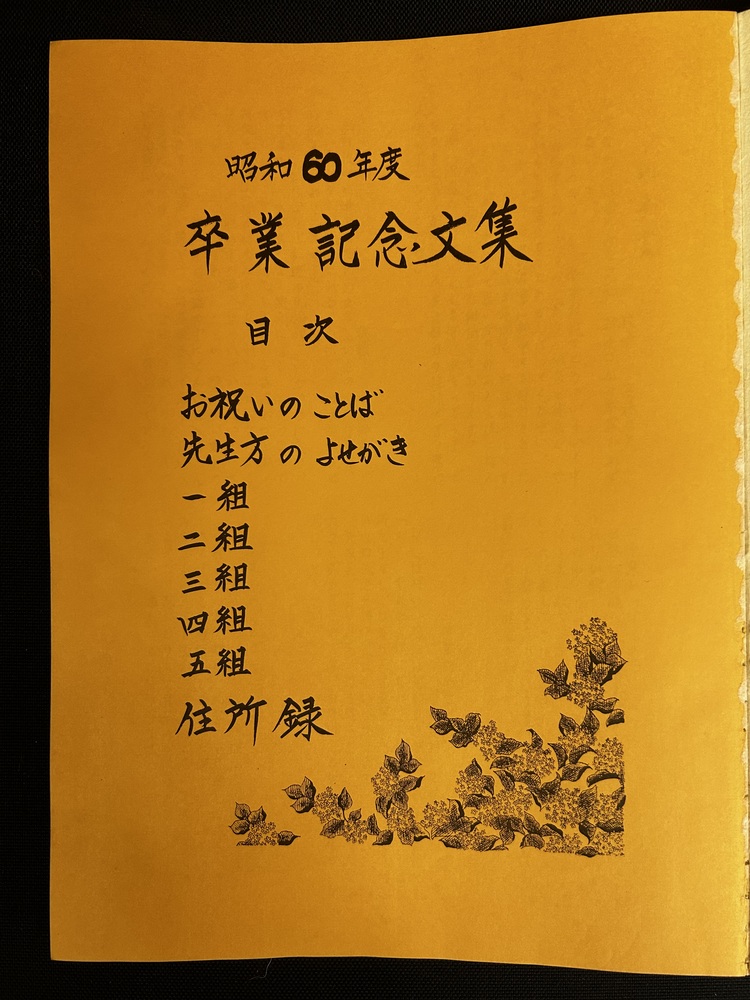 昭和60年度
卒業記念文集
目次
お祝いのことば
先生方のよせがき
一組
二組
三組
四組
五組
住所録